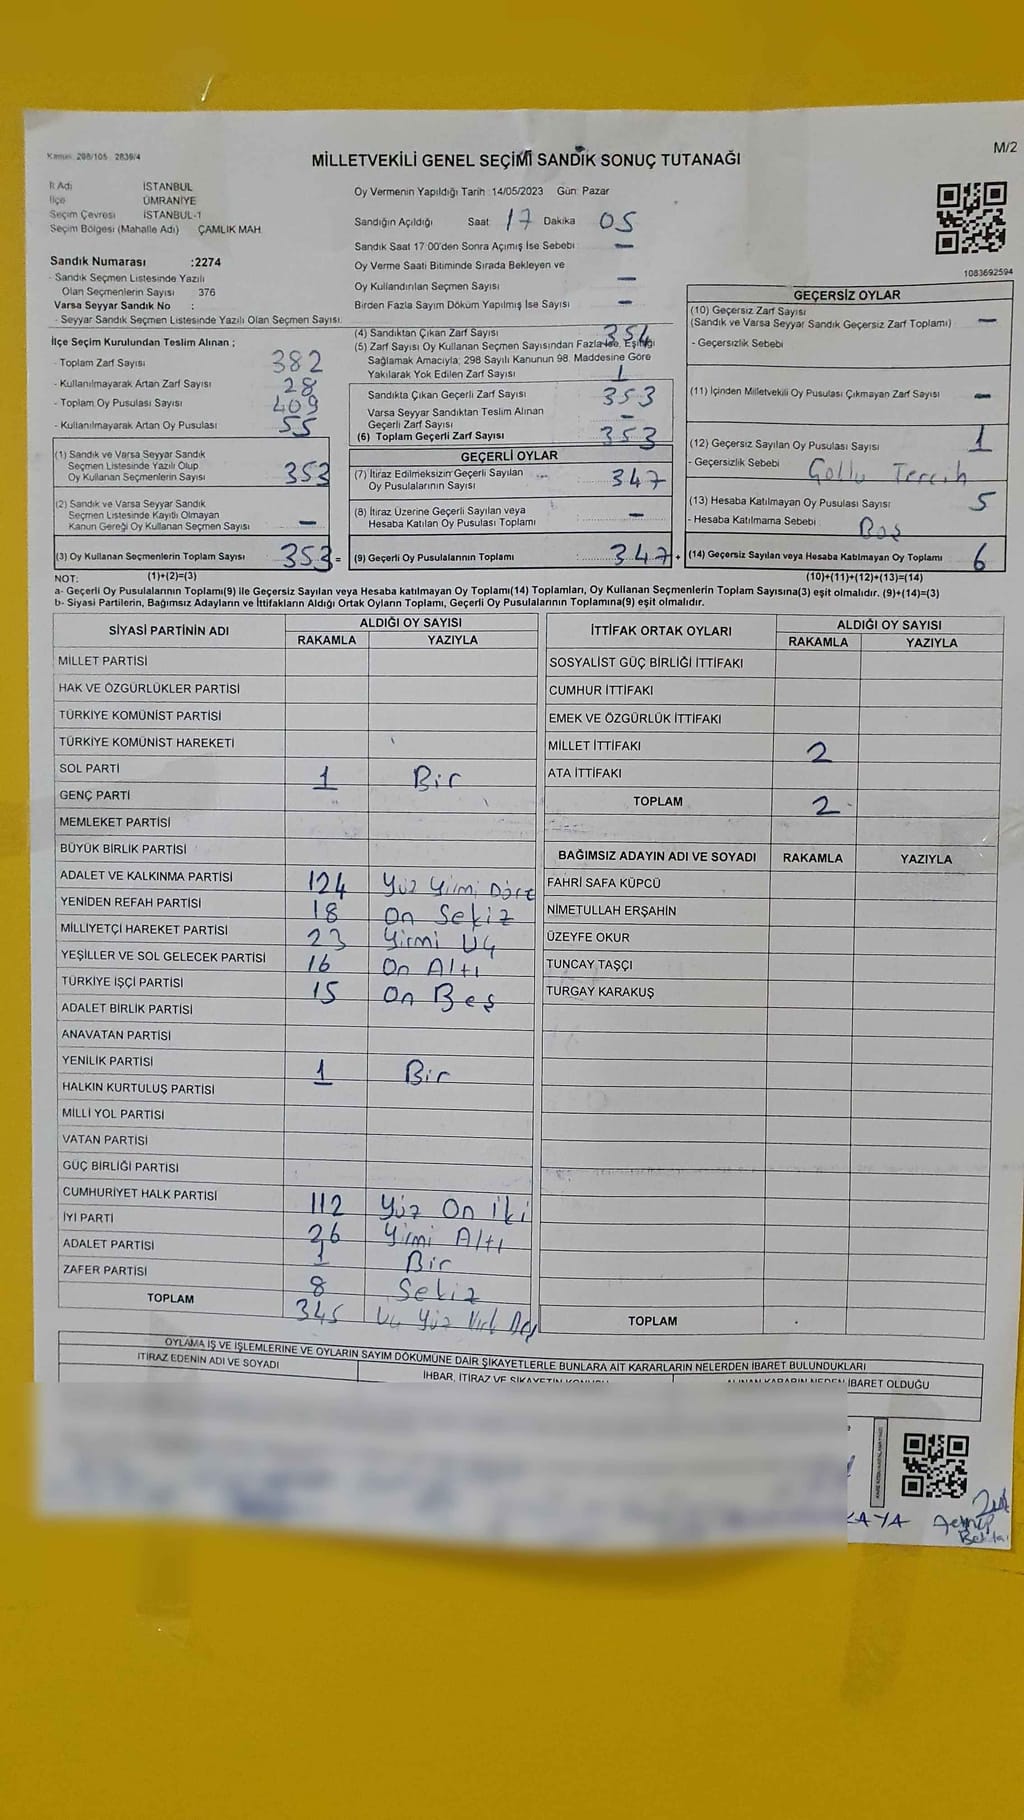 Kanun: 298/105 2839/4
M/2
MİLLETVEKİLİ GENEL SEÇİMİ SANDIK SONUÇ TUTANAĞI
İl Adı İSTANBUL
İlçe ÜMRANİYE
Seçim Çevresi İSTANBUL-1
Seçim Bölgesi (Mahalle Adı) ÇAMLIK MAH.
Sandık Numarası :2274
- Sandık Seçmen Listesinde Yazılı
Olan Seçmenlerin Sayısı 376
Varsa Seyyar Sandık No :
- Seyyar Sandık Seçmen Listesinde Yazılı Olan Seçmen Sayısı:
İlçe Seçim Kurulundan Teslim Alınan ;
- Toplam Zarf Sayısı 382
- Kullanılmayarak Artan Zarf Sayısı 28
- Toplam Oy Pusulası Sayısı 409
- Kullanılmayarak Artan Oy Pusulası 55
(1) Sandık ve Varsa Seyyar Sandık
Seçmen Listesinde Yazılı Olup
Oy Kullanan Seçmenlerin Sayısı 353
(2) Sandık ve Varsa Seyyar Sandık
Seçmen Listesinde Kayıtlı Olmayan
Kanun Gereği Oy Kullanan Seçmen Sayısı –
(3) Oy Kullanan Seçmenlerin Toplam Sayısı 353 =
(1)+(2)=(3)
Oy Vermenin Yapıldığı Tarih :14/05/2023 Gün: Pazar
Sandığın Açıldığı Saat: 17 Dakika 05
Sandık Saat 17:00'den Sonra Açımış İse Sebebi : –
Oy Verme Saati Bitiminde Sırada Bekleyen ve
Oy Kullandırılan Seçmen Sayısı –
Birden Fazla Sayım Döküm Yapılmış İse Sayısı –
(4) Sandıktan Çıkan Zarf Sayısı 354
(5) Zarf Sayısı Oy Kullanan Seçmen Sayısından Fazla İse, Eşitliği
Sağlamak Amacıyla; 298 Sayılı Kanunun 98. Maddesine Göre
Yakılarak Yok Edilen Zarf Sayısı 1
Sandıkta Çıkan Geçerli Zarf Sayısı 353
Varsa Seyyar Sandıktan Teslim Alınan
Geçerli Zarf Sayısı –
(6) Toplam Geçerli Zarf Sayısı 353
GEÇERLİ OYLAR
(7) İtiraz Edilmeksizin Geçerli Sayılan
Oy Pusulalarının Sayısı 347
(8) İtiraz Üzerine Geçerli Sayılan veya
Hesaba Katılan Oy Pusulası Toplamı –
(9) Geçerli Oy Pusulalarının Toplamı 347 +
1083692594
GEÇERSİZ OYLAR
(10) Geçersiz Zarf Sayısı
(Sandık ve Varsa Seyyar Sandık Geçersiz Zarf Toplamı) –
- Geçersizlik Sebebi
(11) İçinden Milletvekili Oy Pusulası Çıkmayan Zarf Sayısı –
(12) Geçersiz Sayılan Oy Pusulası Sayısı 1
- Geçersizlik Sebebi : Çoklu Tercih
(13) Hesaba Katılmayan Oy Pusulası Sayısı 5
- Hesaba Katılmama Sebebi : Boş
(14) Geçersiz Sayılan veya Hesaba Katılmayan Oy Toplamı 6
(10)+(11)+(12)+(13)=(14)
NOT:
a- Geçerli Oy Pusulaları Toplamı(9) ile Geçersiz Sayılan veya Hesaba katılmayan Oy Toplamı(14) Toplamları, Oy Kullanan Seçmenlerin Toplam Sayısına(3) eşit olmalıdır. (9)+(14)=(3)
b- Siyasi Partilerin, Bağımsız Adayların ve İttifakların Aldığı Ortak Oyların Toplamı, Geçerli Oy Pusulalarının Toplamına(9) eşit olmalıdır.
SİYASİ PARTİNİN ADI ALDIĞI OY SAYISI
RAKAMLA YAZIYLA
MİLLET PARTİSİ
HAK VE ÖZGÜRLÜKLER PARTİSİ
TÜRKİYE KOMÜNİST PARTİSİ
TÜRKİYE KOMÜNİST HAREKETİ
SOL PARTİ 1 Bir
GENÇ PARTİ
MEMLEKET PARTİSİ
BÜYÜK BİRLİK PARTİSİ
ADALET VE KALKINMA PARTİSİ 124 Yüz Yirmi Dört
YENİDEN REFAH PARTİSİ 18 On Sekiz
MİLLİYETÇİ HAREKET PARTİSİ 23 Yirmi Üç
YEŞİLLER VE SOL GELECEK PARTİSİ 16 On Altı
TÜRKİYE İŞÇİ PARTİSİ 15 On Beş
ADALET BİRLİK PARTİSİ
ANAVATAN PARTİSİ
YENİLİK PARTİSİ 1 Bir
HALKIN KURTULUŞ PARTİSİ
MİLLİ YOL PARTİSİ
VATAN PARTİSİ
GÜÇ BİRLİĞİ PARTİSİ
CUMHURİYET HALK PARTİSİ 112 Yüz On İki
İYİ PARTİ 26 Yirmi Altı
ADALET PARTİSİ 1 Bir
ZAFER PARTİSİ 8 Sekiz
TOPLAM 345 Üç Yüz Kırk Beş
İTTİFAK ORTAK OYLARI ALDIĞI OY SAYISI
RAKAMLA YAZIYLA
SOSYALİST GÜÇ BİRLİĞİ İTTİFAKI
CUMHUR İTTİFAKI
EMEK VE ÖZGÜRLÜK İTTİFAKI
MİLLET İTTİFAKI 2
ATA İTTİFAKI
TOPLAM 2
BAĞIMSIZ ADAYIN ADI VE SOYADI RAKAMLA YAZIYLA
FAHRİ SAFA KÜPCÜ
NİMETULLAH ERŞAHİN
ÜZEYFE OKUR
TUNCAY TAŞÇI
TURGAY KARAKUŞ
TOPLAM
OYLAMA İŞ VE İŞLEMLERİNE VE OYLARIN SAYIM DÖKÜMÜNE DAİR ŞİKAYETLERLE BUNLARA AİT KARARLARIN NELERDEN İBARET BULUNDUKLARI
İTİRAZ EDENİN ADI VE SOYADI
İHBAR, İTİRAZ VE ŞİKAYETİN KONUSU
ALINAN KARARIN NEDEN İBARET OLDUĞU
KAYA